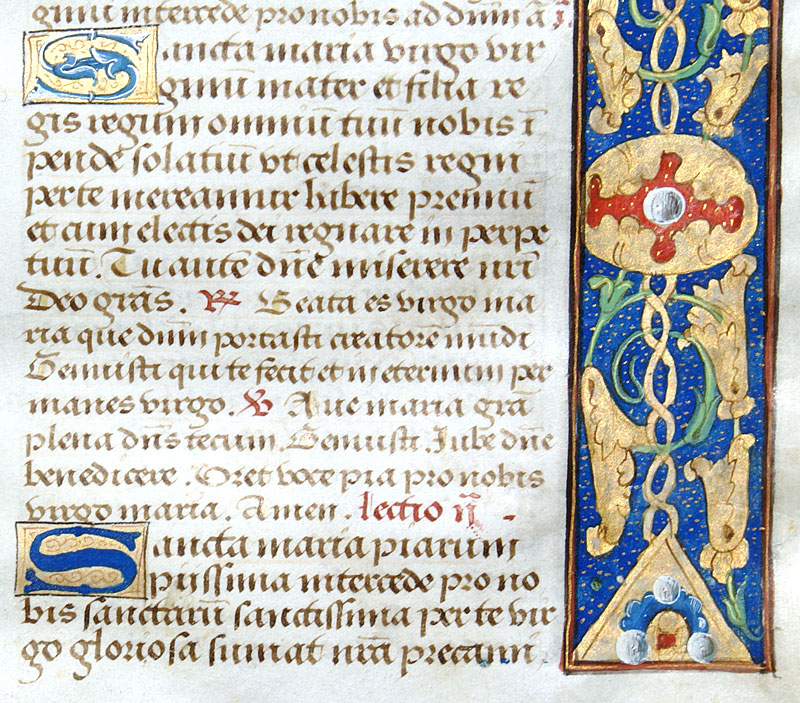 ginū intercede pro nobis ad dūm ā
Sancta maria virgo vir
ginū mater et filia re
gis regum omniū tuū nobis ī
pende solatiū vt celestis regni
per te mereamur hībere premiū
et cum electis dei regnare in perpe
tuū. Tu autē dn̄e miserere nr̄i
Deo grās. Beata es virgo ma
ria que dn̄m portasti creatorē mūdi
Genuisti qui te fecit et in eternum per
manes virgo. ℣ Aue maria grā
plena dn̄s tecum. Genuisti. Iube dn̄e
benedicere. Oret voce pia pro nobis
virgo maria. Amen. lectio ij̄
Sancta maria piarum
piissima intercede pro no
bis sanctarū sanctissima per te vir
go gloriosa sumat nr̄a precami.